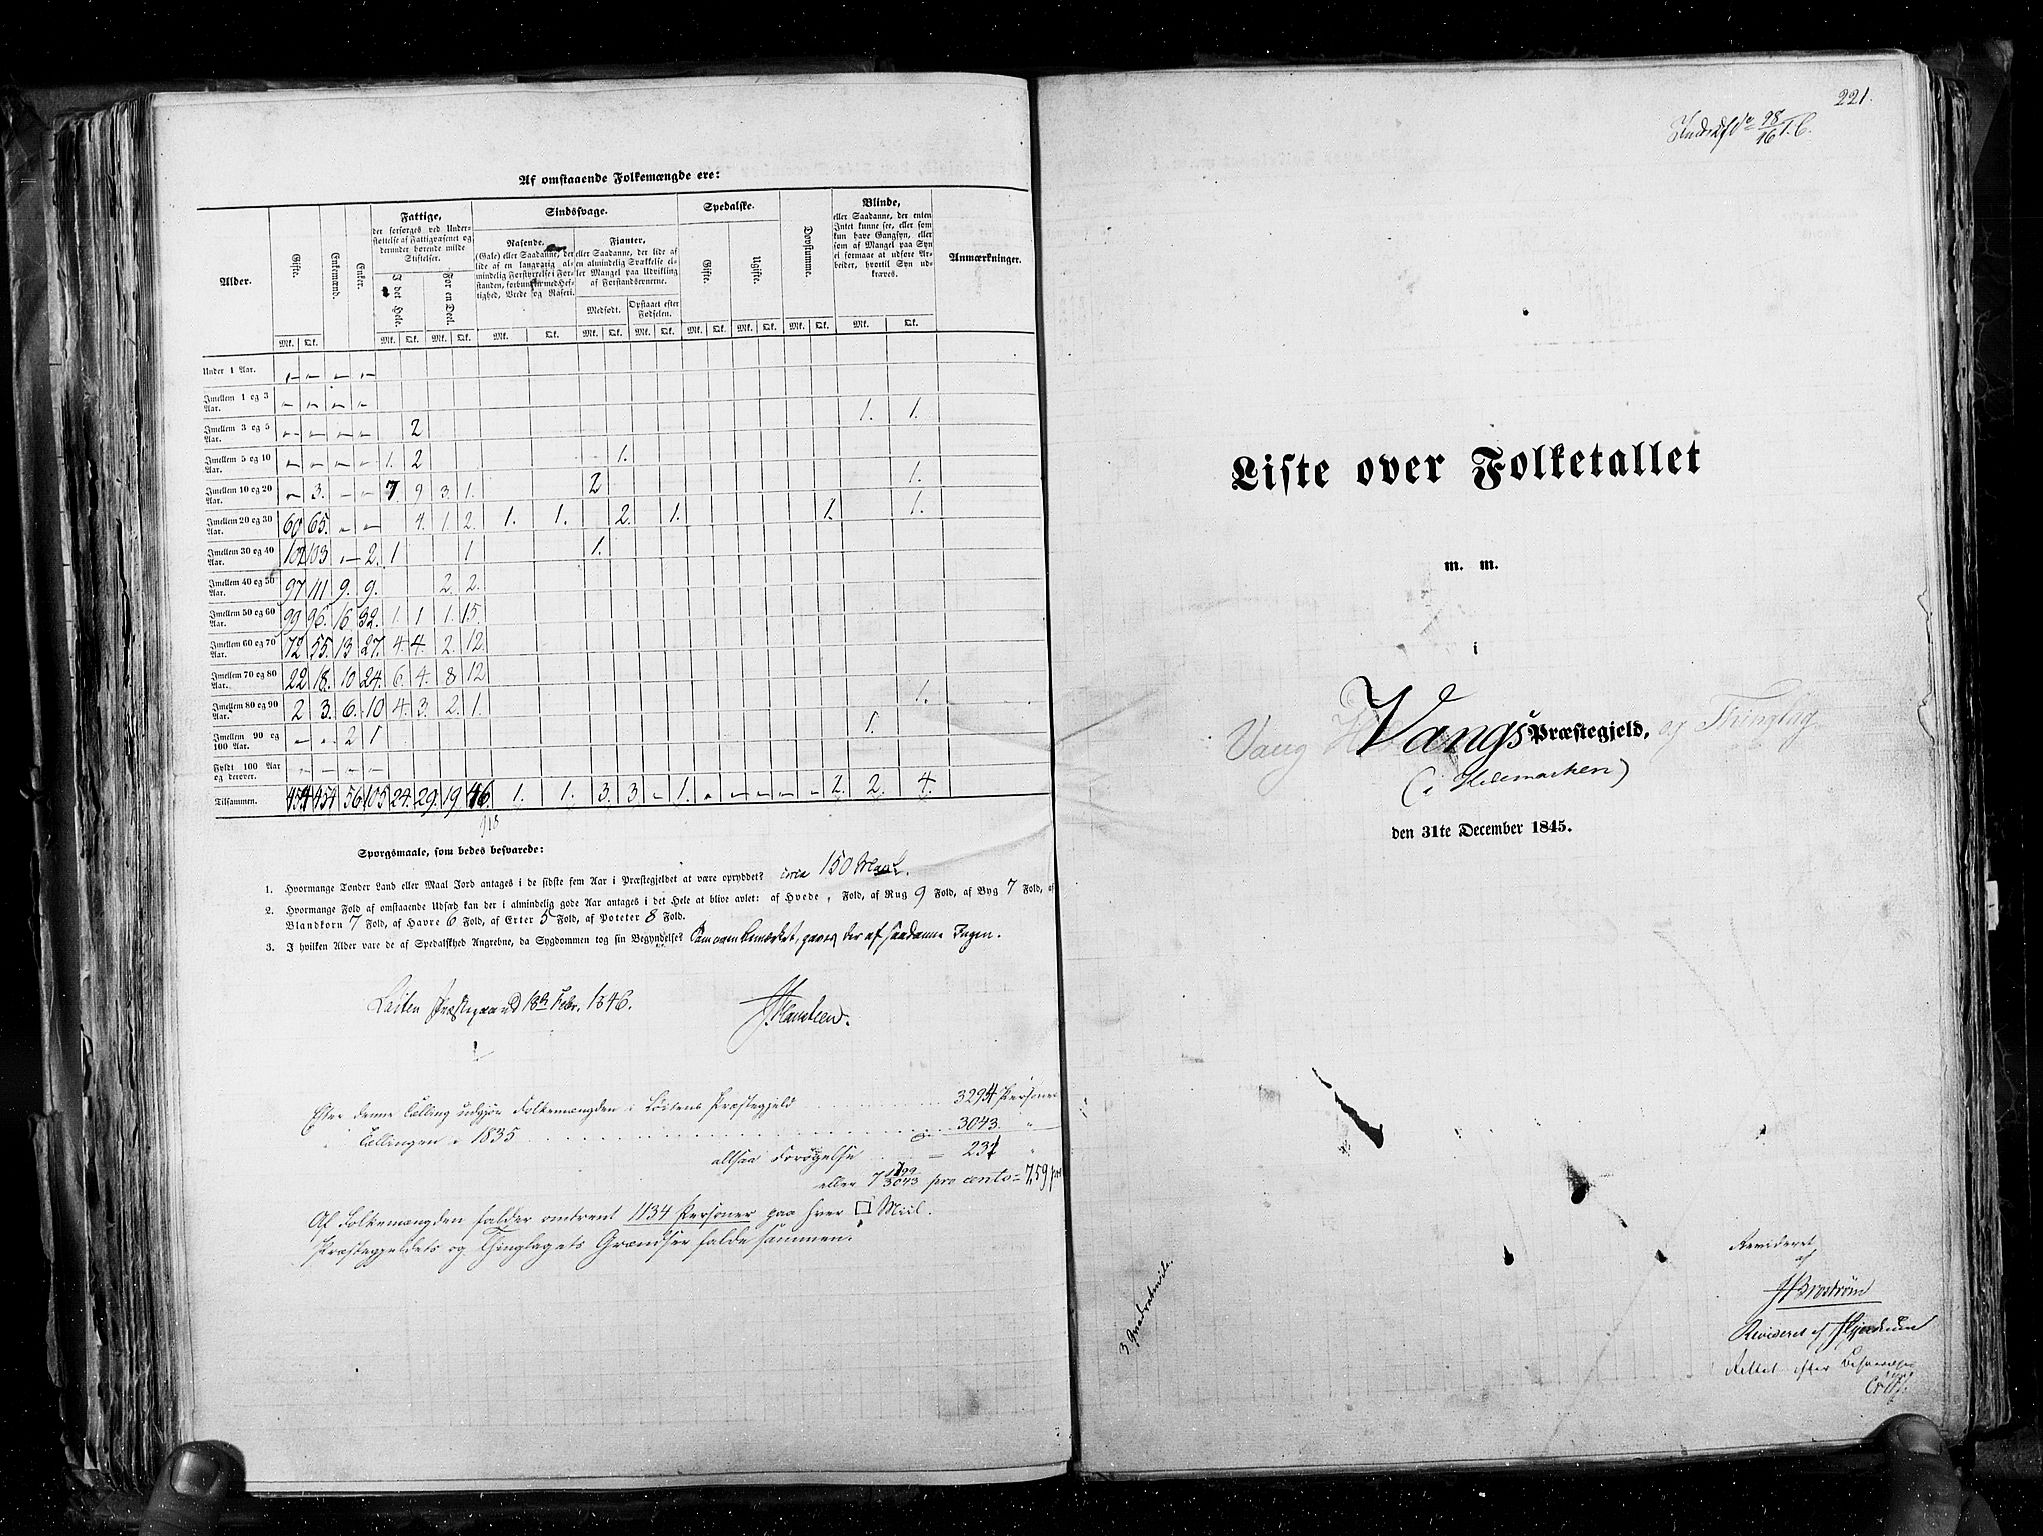 Af omstaaende Folkemængde ere:
Alder.
Gifte.
Enkemænd.
Enker.
Fattige,
der forsørges ved Under-
støttelse af Fattigvæsenet og
derunder hørende milde
Stiftelser.
I det Hele.
For en Deel.
Sindssvage.
Rasende,
(Gale) eller Saadanne, der
lide af en langvarig al-
mindelig Forstyrrelse i For-
standen, forbunden med Hef-
tighed, Vrede og Raseri.
Fjanter,
eller Saadanne, der lide af
en almindelig Svækkelse el-
ler Mangel paa Udvikling
af Forstandsevnerne.
Medfødt.
Opstaaet efter
Fødselen.
Spedalske.
Gifte.
Ugifte.
Døvstumme.
Blinde,
eller Saadanne, der enten
Intet kunne see, eller som
kun have Gangsyn, eller
som af Mangel paa Syn
ei formaae at udføre Ar-
beider, hvortil Syn ud-
kræves.
Anmærkninger.
Mk. Qk. Mk. Qk. Mk. Qk. Mk. Qk. Mk. Qk. Mk. Qk. Mk. Qk. Mk. Qk. Mk. Qk. Mk. Qk.
Under 1 Aar. – – – –
Imellem 1 og 3 Aar. – – – – 1. 1.
Imellem 3 og 5 Aar. – – – – 2
Imellem 5 og 10 Aar. – – – – 1. 2 1.
Imellem 10 og 20 Aar. – 3. – – 7 9 3. 1. 2 1.
Imellem 20 og 30 Aar. 60 65. – – 4. 1. 2. 1. 1. 2. 1. 1. 1.
Imellem 30 og 40 Aar. 102 103 – 2. 1 1 1.
Imellem 40 og 50 Aar. 97 111 9. 9. 2 2.
Imellem 50 og 60 Aar. 99 96. 16 32. 1. 1 1. 15.
Imellem 60 og 70 Aar. 72 55. 13 27. 4. 4. 2. 12.
Imellem 70 og 80 Aar. 22 18. 10 24. 6. 4. 8 12
Imellem 80 og 90 Aar. 2 3. 6. 10 4. 3. 2. 1. 1.
Imellem 90 og 100 Aar. – – 2 1 1.
Fyldt 100 Aar og derover. – – – –
Tilsammen. 454 454 56 105 24. 29. 19 46. 1. 1. 3. 3 – 1. – – – – – 2. 2. 4.
Spørgsmaale, som bedes besvarede:
1. Hvormange Tønder Land eller Maal Jord antages i de sidste fem Aar i Præstegjeldet at være opryddet? circa 150 Maal.
2. Hvormange Fold af omstaaende Udsæd kan der i almindelig gode Aar antages i det Hele at blive avlet: af Hvede , Fold, af Rug 9 Fold, af Byg 7 Fold, af
Blandkorn 7 Fold, af Havre 6 Fold, af Erter 5 Fold, af Poteter 8 Fold.
3. I hvilken Alder vare de af Spedalskhed Angrebne, da Sygdommen tog sin Begyndelse? Som oven bemærket, gaves der af saadanne Ingen.
Løiten Præstegaard 18de Febr. 1846.
Efter denne Tælling udgjør Folkemængden i Løitens Præstegjeld 3294 Personer
" Tællingen i 1835 3043. "
altsaa Forøgelse = 231 "
eller 7 pro cento = 7,59 pro
Af Folkemængden falder omtrent 1134 Personer paa hver □ Miil.
Præstegjeldets og Thinglagets Grændser falde sammen.
221.
Liste over Folketallet
m. m.
i
Vangs Præstegjeld, og Thinglag
Vang
(i Hedemarken)
den 31te December 1845.
3 Qvadratmile.
Revideret
af
Brostrøm
Revideret af
Rettet efter